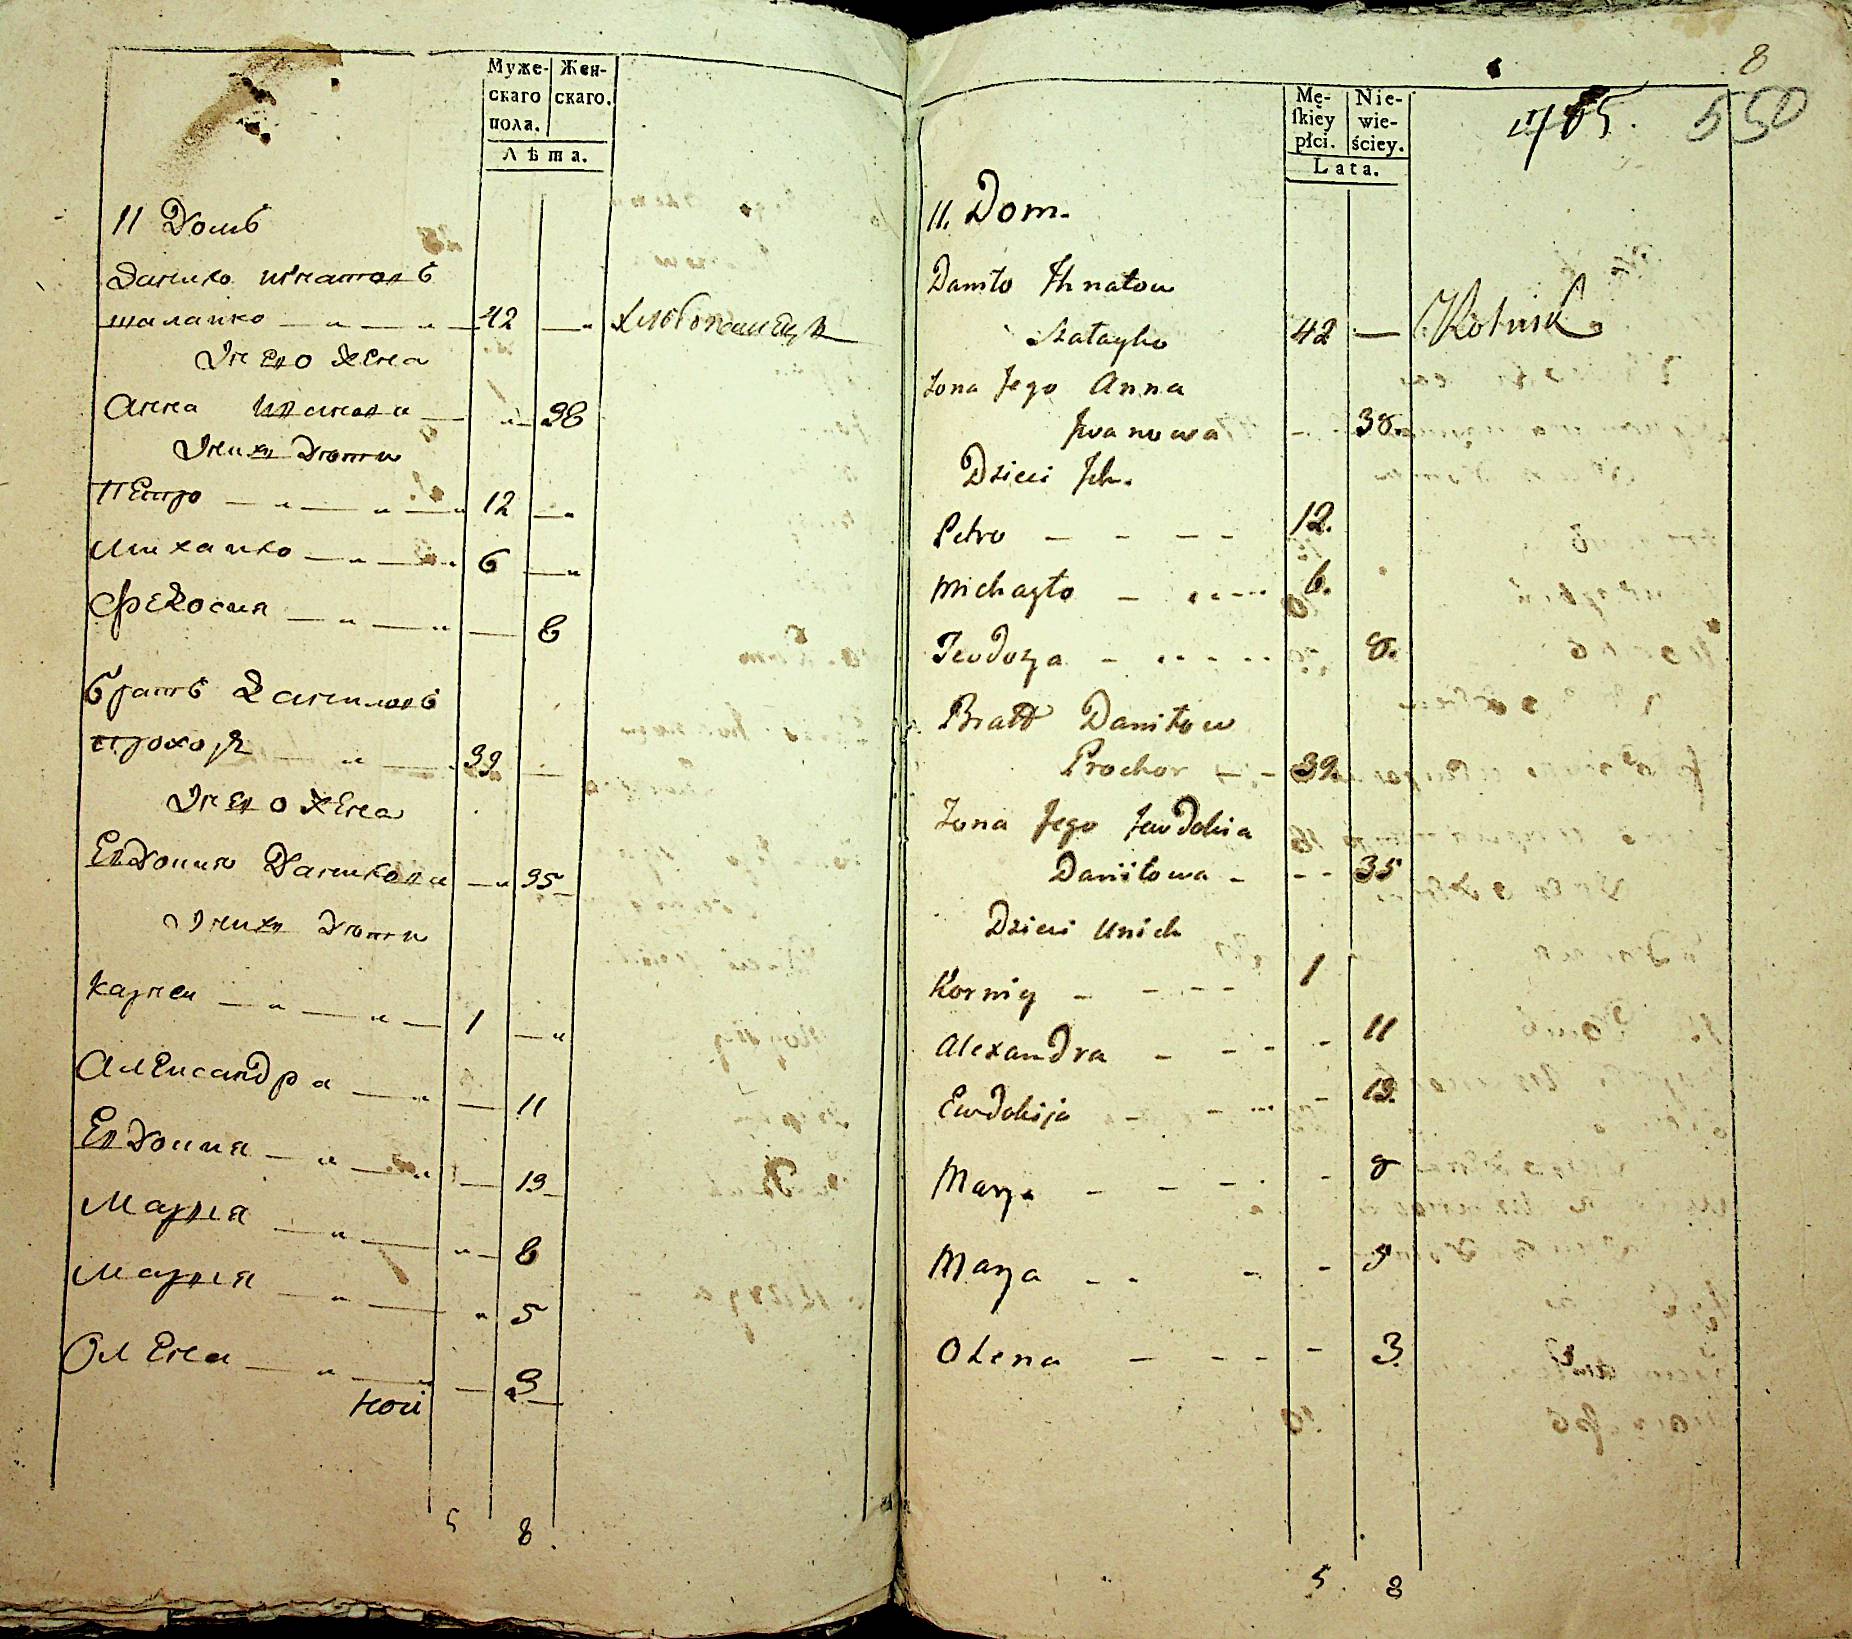 Муже-
скаго
пола.
Жен-
скаго.
Лѣта.
11 Домъ
Данило Игнатовъ
шалаико 42
У него жена
Анна Иванова 38
У них дѣти
Петро 12
Михаило 6
Федосия 8
братъ Даниловъ
прохор 39
У него жена
Евдокия Данилова 35
У них дѣти
карней 1
Александра 11
Евдокия 13
Мария 8
Мария 5
Олена 3
5 8
8
Mę-
ſkiey
płci.
Nie-
wie-
ściey.
Lata.
550
11. Dom.
Daniło Ihnatow
Szałayko 42 Rolnik
Żona Jego Anna
Jwanowa 38.
Dzieci Ich.
Petro 12.
Michayło 6.
Teodozya 8.
Bratt Daniłow
Prochor 39.
Żona Jego Jewdokia
Daniiłowa 35
Dzieci Unich
Korniy 1
Alexandra 11
Ewdokija 13.
Marya 8
Marya 5
Olena 3.
5 8